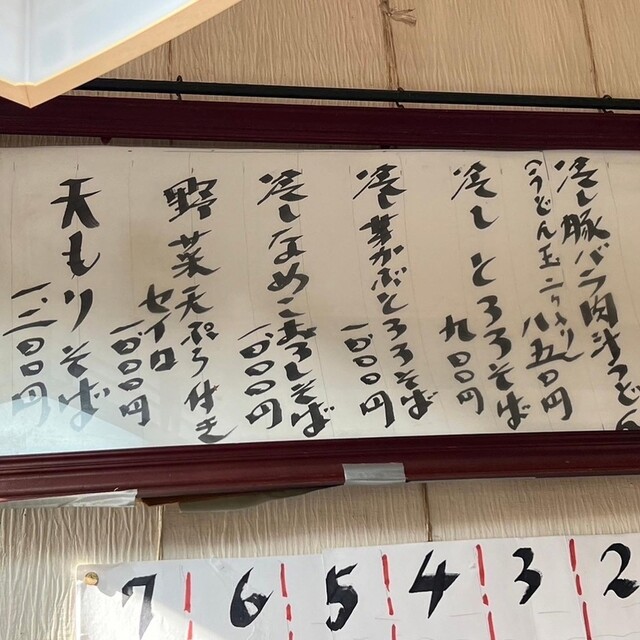 冷し豚バラ肉汁うどん
(うどん玉二ケ入り)
八五〇円
冷しとろろそば
九〇〇円
冷し葉わさびとろろそば
一〇〇〇円
冷しなめこおろしそば
一〇〇〇円
野菜天ぷら付き
セイロ
一〇〇〇円
天もりそば
一、三〇〇円
7 6 5 4 3 2